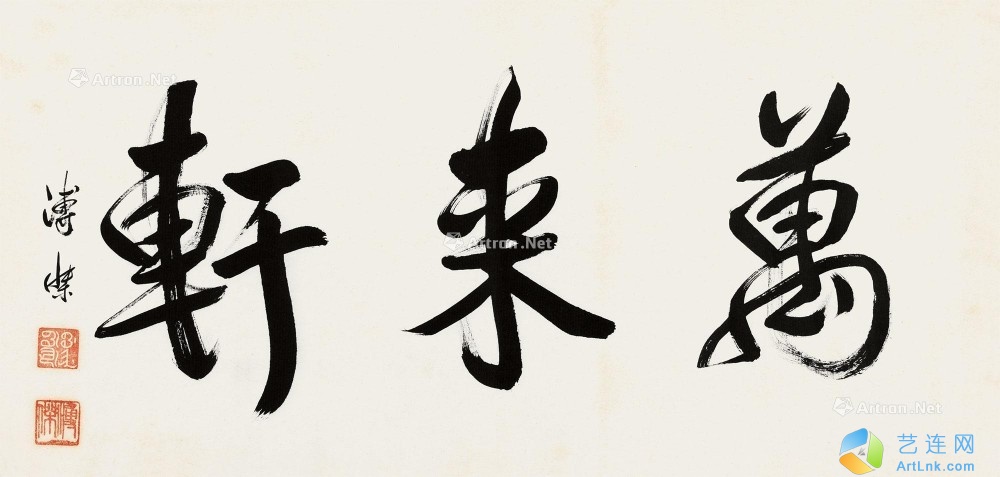 萬来軒
溥傑
Artron.Net
Artron.Net
Artron.Net
艺连网
ArtLnk.com